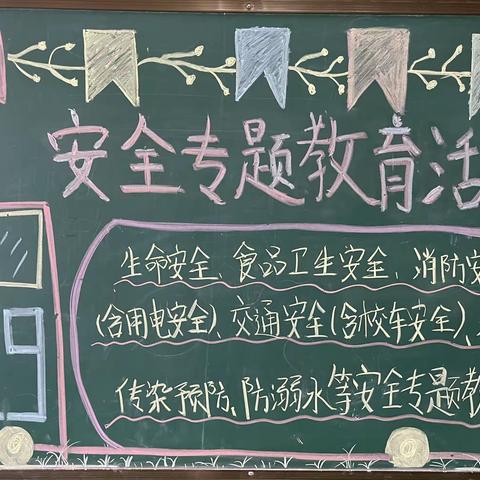 安全专题教育活
生命安全、食品卫生安全、消防安
(含用电安全)、交通安全(含校车安全)、
传染预防、防溺水等安全专题教